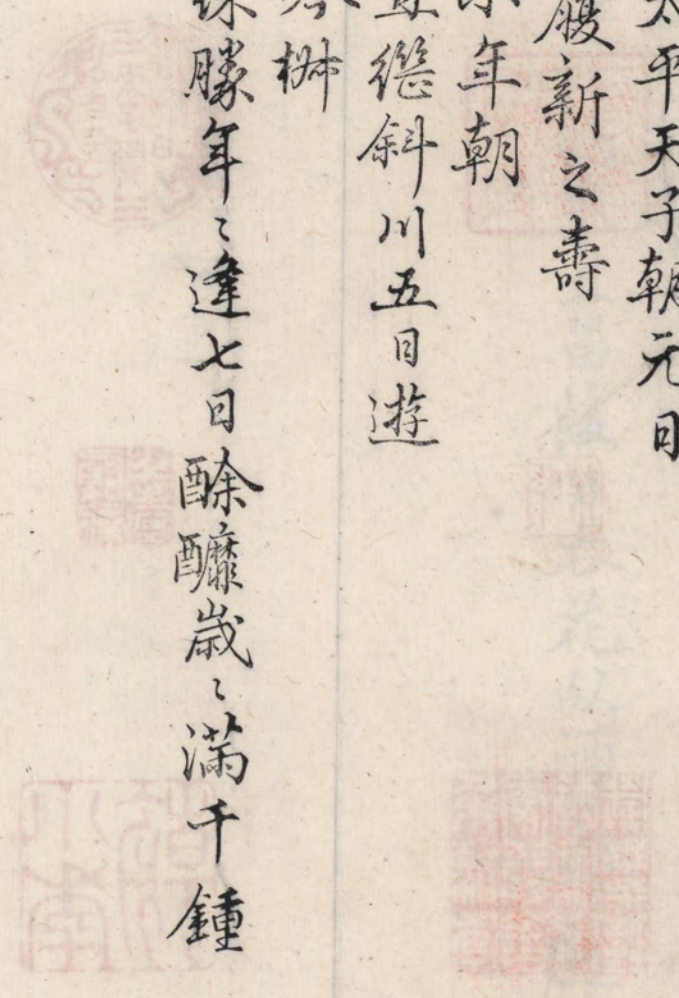 太平天子朝元日
履新之壽
年朝
繼斜川五日遊
椕
勝年〻逢七日酴醿歲〻滿千鍾